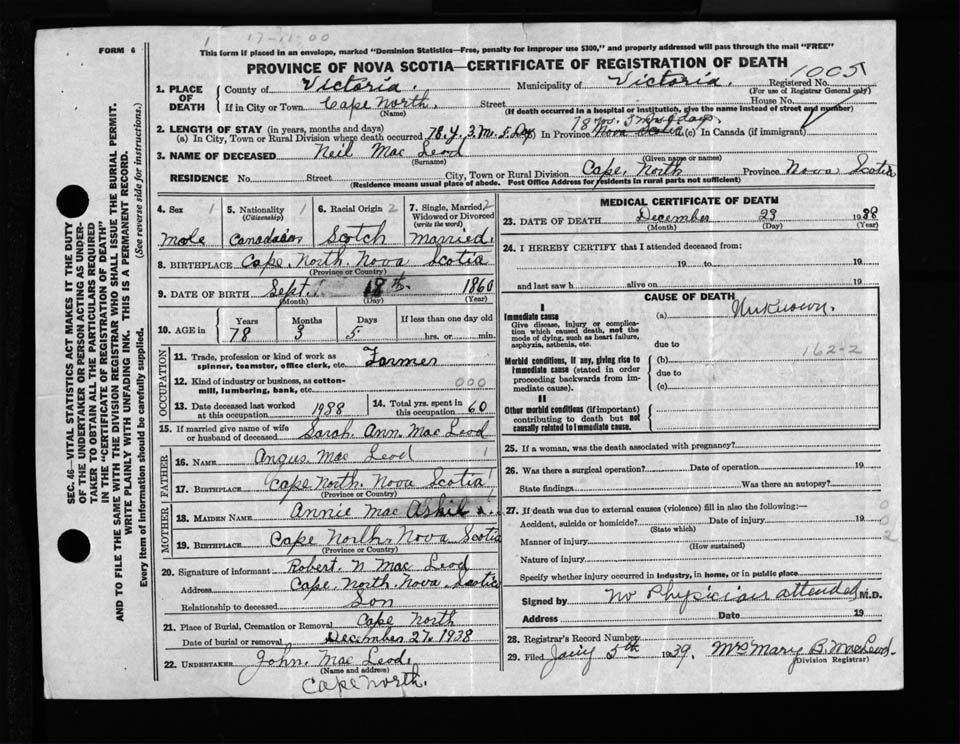 1 17-11-00
FORM 6
This form if placed in an envelope, marked "Dominion Statistics—Free, penalty for improper use $300," and properly addressed will pass through the mail "FREE"
PROVINCE OF NOVA SCOTIA—CERTIFICATE OF REGISTRATION OF DEATH
1005
1. PLACE OF DEATH
County of Victoria. Municipality of Victoria. Registered No.
(For use of Registrar General only)
If in City or Town Cape North. Street House No.
(Name) (If death occurred in a hospital or institution, give the name instead of street and number)
2. LENGTH OF STAY (in years, months and days)
78 yrs. 3 mos 5 days
(a) In City, Town or Rural Division where death occurred 78 y. 3 m. 5 Dy (b) In Province Nova Scotia (c) In Canada (if immigrant)
3. NAME OF DECEASED Neil Mac Leod
(Surname) (Given name or names)
RESIDENCE No. Street City, Town or Rural Division Cape North Province Nova Scotia
(Residence means usual place of abode. Post Office Address for residents in rural parts not sufficient)
4. Sex 1 5. Nationality 1 6. Racial Origin 2 7. Single, Married, 2
(Citizenship) Widowed or Divorced
(write the word)
Male Canadaian Scotch Married.
8. BIRTHPLACE Cape. North. Nova Scotia
(Province or Country)
9. DATE OF BIRTH Sept. 18th. 1860
(Month) (Day) (Year)
10. AGE in Years Months Days If less than one day old
78 3 5 hrs. or min.
OCCUPATION
11. Trade, profession or kind of work as spinner, teamster, office clerk, etc. Farmer
12. Kind of industry or business, as cotton-mill, lumbering, bank, etc. 000
13. Date deceased last worked at this occupation 1938
14. Total yrs. spent in this occupation 60
15. If married give name of wife or husband of deceased Sarah. Ann. Mac Leod
FATHER
16. NAME Angus Mac Leod 1
17. BIRTHPLACE Cape North. Nova Scotia
(Province or Country)
MOTHER
18. MAIDEN NAME Annie Mac Askil
19. BIRTHPLACE Cape North, Nova Scotia
(Province or Country)
20. Signature of informant Robert. N Mac Leod
Address Cape North. Nova. Scotia
Relationship to deceased Son
21. Place of Burial, Cremation or Removal Cape North
Date of burial or removal December 27th 1938
22. UNDERTAKER John. Mac Leod.
(Name and address)
Cape North.
MEDICAL CERTIFICATE OF DEATH
23. DATE OF DEATH December 23 1938
(Month) (Day) (Year)
24. I HEREBY CERTIFY that I attended deceased from:
19 to 19
and last saw h alive on 19
CAUSE OF DEATH
I
Immediate cause (a) Unknown.
Give disease, injury or complication which caused death, not the mode of dying, such as heart failure, asphyxia, asthenia, etc.
due to
162-2
Morbid conditions, if any, giving rise to immediate cause (stated in order proceeding backwards from immediate cause).
(b)
due to
(c)
II
Other morbid conditions (if important) contributing to death but not causally related to immediate cause.
25. If a woman, was the death associated with pregnancy?
26. Was there a surgical operation? Date of operation 19
State findings Was there an autopsy?
27. If death was due to external causes (violence) fill in also the following:— 0
Accident, suicide or homicide? Date of injury 19 0
(State which) 2
Manner of injury
(How sustained)
Nature of injury
Specify whether injury occurred in industry, in home, or in public place
Signed by No Physician attended M.D.
Address Date 19
28. Registrar's Record Number
29. Filed Jany 5th 1939. Mrs Mary B. MacLeod.
(Division Registrar)
SEC. 46—VITAL STATISTICS ACT MAKES IT THE DUTY
OF THE UNDERTAKER OR PERSON ACTING AS UNDERTAKER TO OBTAIN ALL THE PARTICULARS REQUIRED
IN THE "CERTIFICATE OF REGISTRATION OF DEATH"
AND TO FILE THE SAME WITH THE DIVISION REGISTRAR WHO SHALL ISSUE THE BURIAL PERMIT.
WRITE PLAINLY WITH UNFADING INK. THIS IS A PERMANENT RECORD.
Every item of information should be carefully supplied. (See reverse side for instructions.)